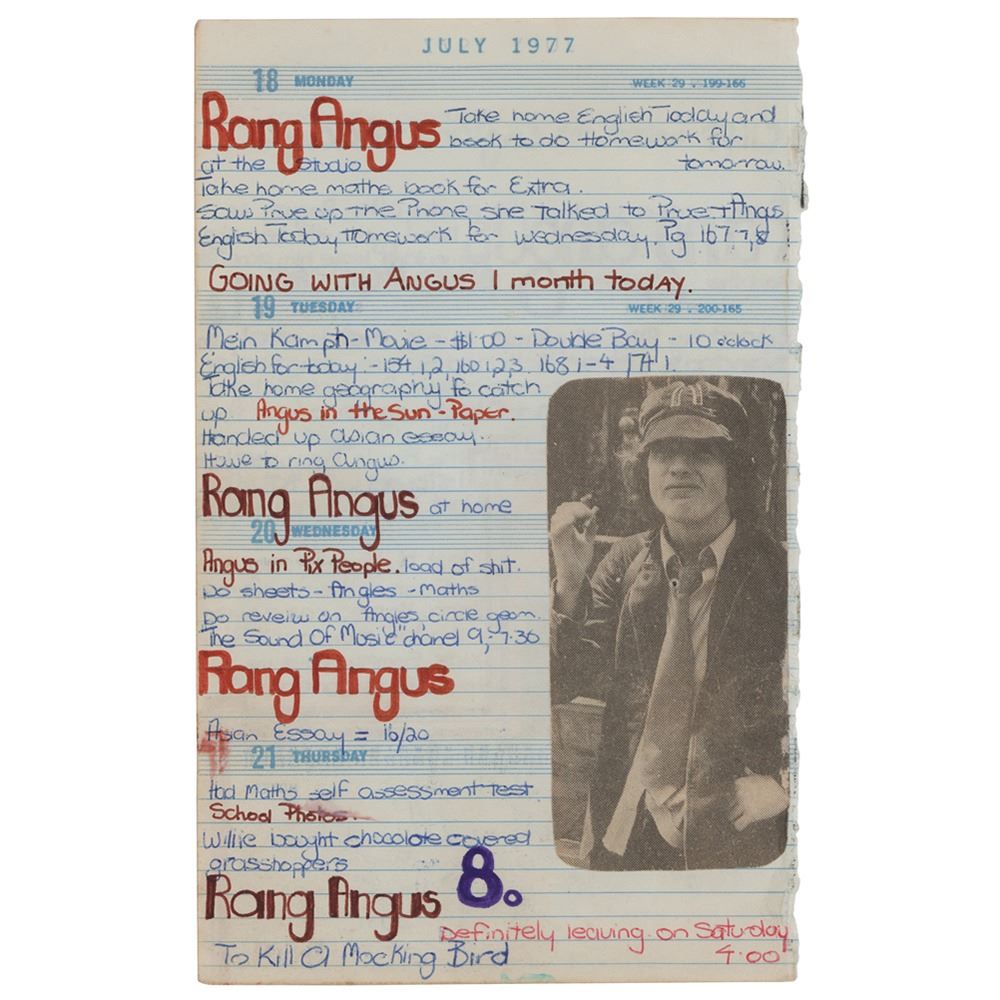 JULY 1977
18 MONDAY WEEK 29 . 199-166
Rang Angus Take home English Today and
book to do Homework for
at the Studio tomorrow.
Take home maths book for Extra.
Saw Prue up The Phone, she Talked to Prue + Angus
English Today Homework for Wednesday. Pg 167 7,8
GOING WITH ANGUS 1 month today.
19 TUESDAY WEEK 29 . 200-165
Mein Kamph - Movie - $1.00 - Double Bay - 10 o'clock
English for today - 154 1,2, 160 1,2,3, 168 1-4 174 1.
Take home geography to catch
up. Angus in the Sun - Paper.
Handed up asian essay.
Have to ring Angus.
Rang Angus at home
20 WEDNESDAY
Angus in Pix People. load of shit.
Do sheets - Angles - Maths
Do reveiw on Angles, circle geom.
"The Sound Of Music" chanel 9, - 7.30
Rang Angus
Asian Essay = 16/20
21 THURSDAY
Had Maths self assessment test
School Photos.
Willie bought chocolate covered
grasshoppers
Rang Angus 8.
Definitely leaving on Saturday
To Kill A Mocking Bird 4.00